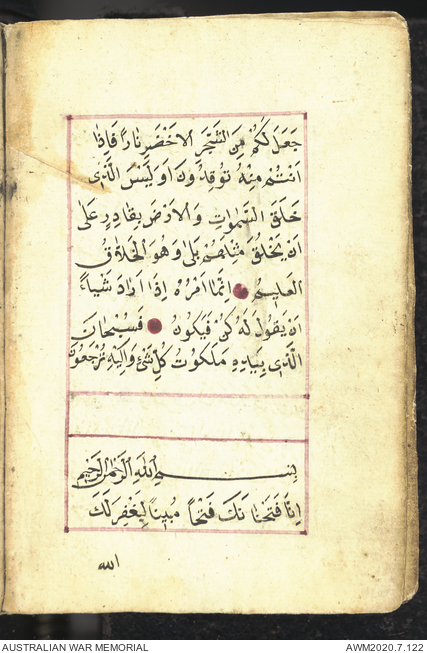 جَعَلَ لَكُمْ مِنَ الشَّجَرِ الْاَخْضَرِ نَارًا فَاِذَا
اَنْتُمْ مِنْهُ تُوقِدُونَ اَوَلَيْسَ الَّذِى
خَلَقَ السَّمٰوَاتِ وَالْاَرْضَ بِقَادِرٍ عَلٰى
اَنْ يَخْلُقَ مِثْلَهُمْ بَلٰى وَهُوَ الْخَلَّاقُ
الْعَلِيمُ اِنَّمَا اَمْرُهُ اِذَا اَرَادَ شَيْئًا
اَنْ يَقُولَ لَهُ كُنْ فَيَكُونُ فَسُبْحَانَ
الَّذِى بِيَدِهِ مَلَكُوتُ كُلِّ شَىْءٍ وَاِلَيْهِ تُرْجَعُونَ
بِسْمِ اللّٰهِ الرَّحْمٰنِ الرَّحِيمِ
اِنَّا فَتَحْنَا لَكَ فَتْحًا مُبِينًا لِيَغْفِرَ لَكَ
الله
AUSTRALIAN WAR MEMORIAL AWM2020.7.122